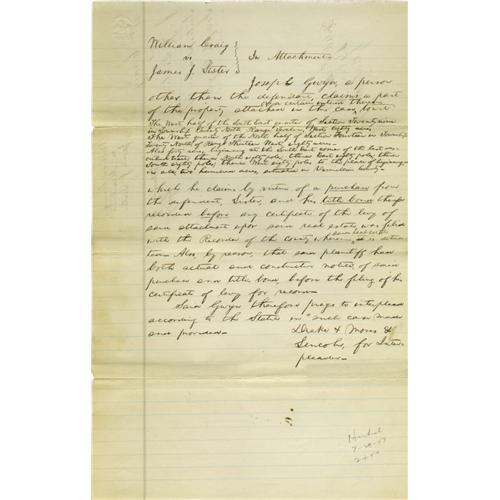 William Craig
vs } In Attachment
James J. Lister
Joseph Gwyn, a person
other than the defendant, claims a part
of the property attached in this case, to wit
The West half of the South East quarter of Section Twenty nine
in Township Twenty North Range Twelve West, Eighty acres
The West quarter of the North half of Section Thirteen in Township
Twenty North of Range Thirteen West, eighty acres
Also forty acres, beginning at the South East corner of the last
thence North eighty poles, thence East eighty poles, thence
South eighty poles, thence West eighty poles to the place of beginning
in all, two hundred acres, situated in Vermilion County.
which he claims by virtue of a purchase from
the defendant, Lister, and his title bond therefor
recorded before any certificate of the levy of
said attachment upon said real estate was filed
with the Recorder of the County wherein said real estate is situa
ted. Also by reason, that said plaintiff had
both actual and constructive notice, of said
purchase and title bond before the filing of his
certificate of levy for record.
Said Gwyn therefore prays to interplead
according to the Statute in such case made
and provided.
Drake & Moses &
Lincoln, for Inter
pleader.